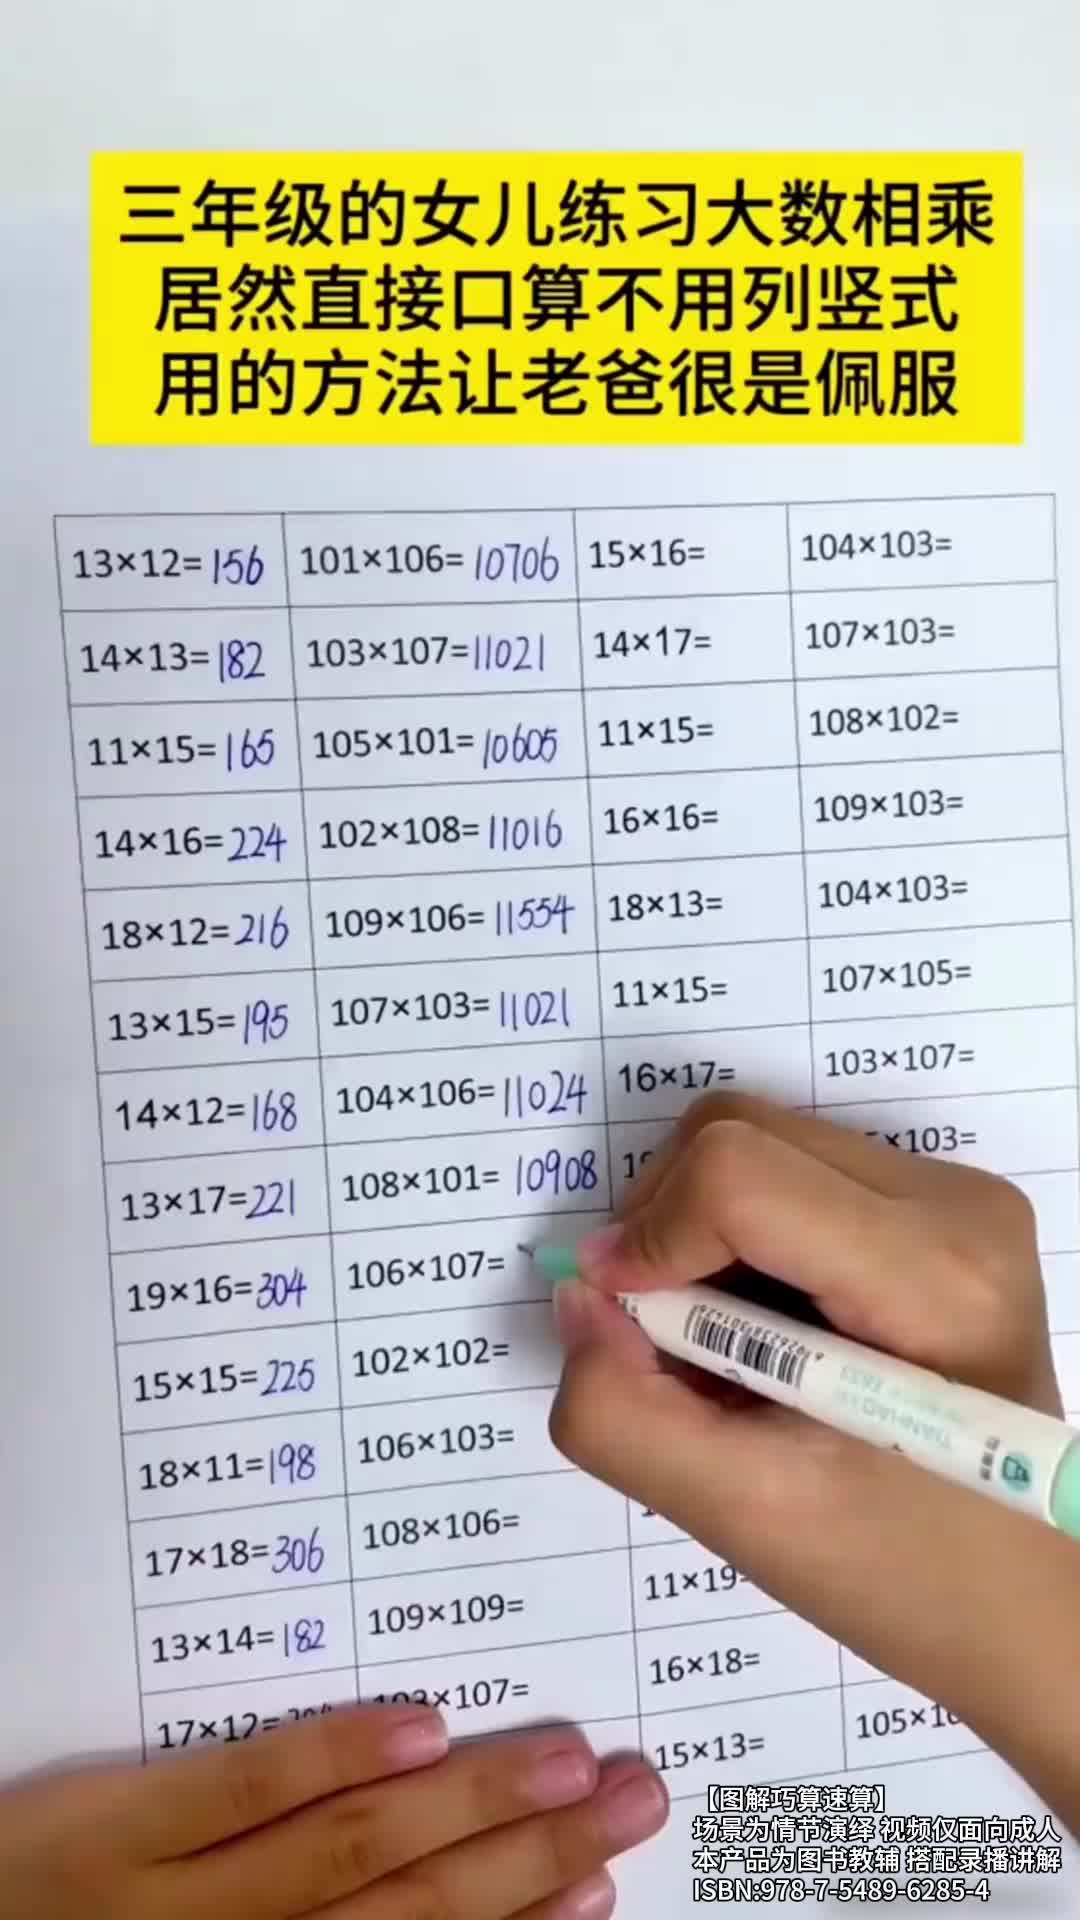 三年级的女儿练习大数相乘
居然直接口算不用列竖式
用的方法让老爸很是佩服
13×12=156 101×106=10706 15×16= 104×103=
14×13=182 103×107=11021 14×17= 107×103=
11×15=165 105×101=10605 11×15= 108×102=
14×16=224 102×108=11016 16×16= 109×103=
18×12=216 109×106=11554 18×13= 104×103=
13×15=195 107×103=11021 11×15= 107×105=
14×12=168 104×106=11024 16×17= 103×107=
13×17=221 108×101=10908 ×103=
19×16=304 106×107=
15×15=225 102×102=
18×11=198 106×103=
17×18=306 108×106= 11×19=
13×14=182 109×109= 16×18=
17×12= ×107= 15×13= 105×
【图解巧算速算】
场景为情节演绎 视频仅面向成人
本产品为图书教辅 搭配录播讲解
ISBN:978-7-5489-6285-4